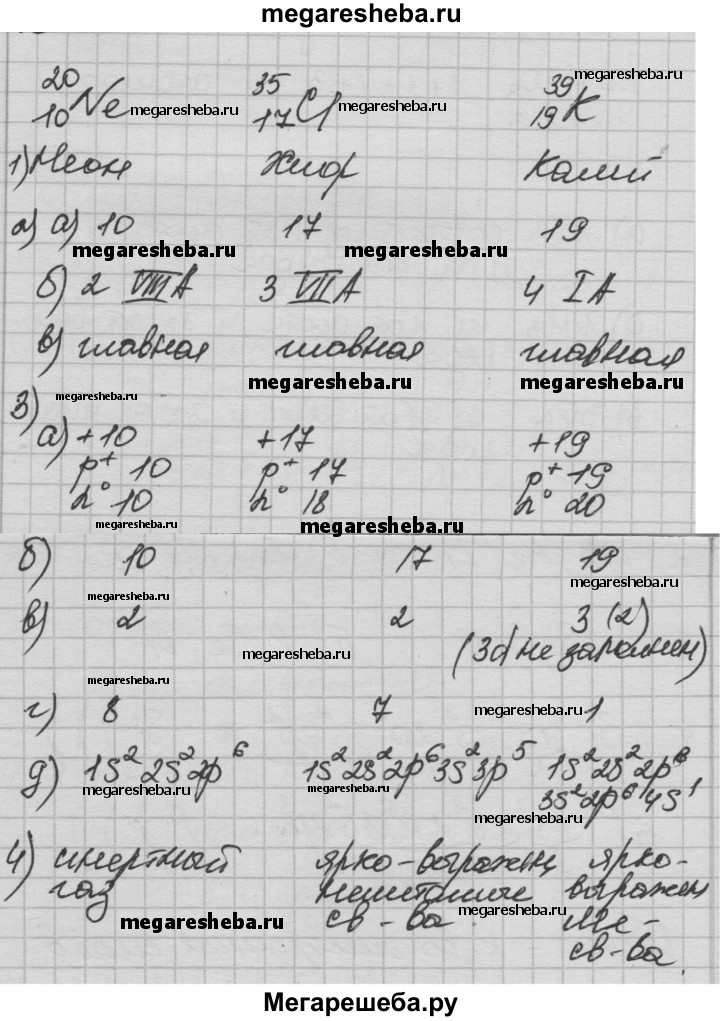 megaresheba.ru
20 10 Ne megaresheba.ru 35 17 Cl megaresheba.ru 39 19 K megaresheba.ru
1) Неон Хлор Калий
2) а) 10 17 19
megaresheba.ru megaresheba.ru
б) 2 VIII A 3 VII A 4 I A
в) главная главная главная
megaresheba.ru megaresheba.ru megaresheba.ru
3)
а) +10 +17 +19
p⁺ 10 p⁺ 17 p⁺ 19
n⁰ 10 n⁰ 18 n⁰ 20
megaresheba.ru megaresheba.ru
б) 10 17 19
megaresheba.ru megaresheba.ru
в) 2 2 3 (2)
megaresheba.ru (3d не заполнен)
megaresheba.ru
г) 8 7 megaresheba.ru 1
д) 1s² 2s² 2p⁶ 1s² 2s² 2p⁶ 3s² 3p⁵ 1s² 2s² 2p⁶
megaresheba.ru megaresheba.ru 3s² 2p⁶ 4s¹
megaresheba.ru
4) инертный ярко-выражен ярко-
газ неметалые выражен
megaresheba.ru св-ва megaresheba.ru Ме-
св-ва.
Мегарешеба.ру